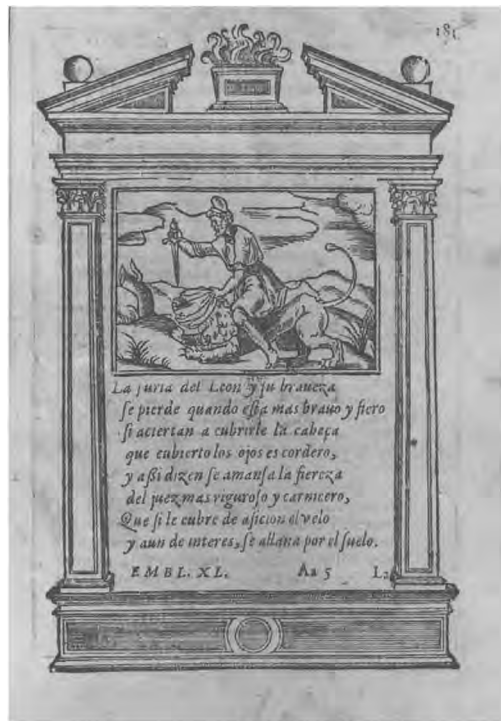 181
La furia del Leon y su braueza
se pierde quando esta mas brauo y fiero
si aciertan a cubrirle la cabeça
que cubierto los ojos es cordero,
y assi dizen se amansa la fiereza
del juez mas riguroso y carnicero,
Que si le cubre de aficion el velo
y aun de interes, se allana por el suelo.
EMBL. XL. Aa 5 La